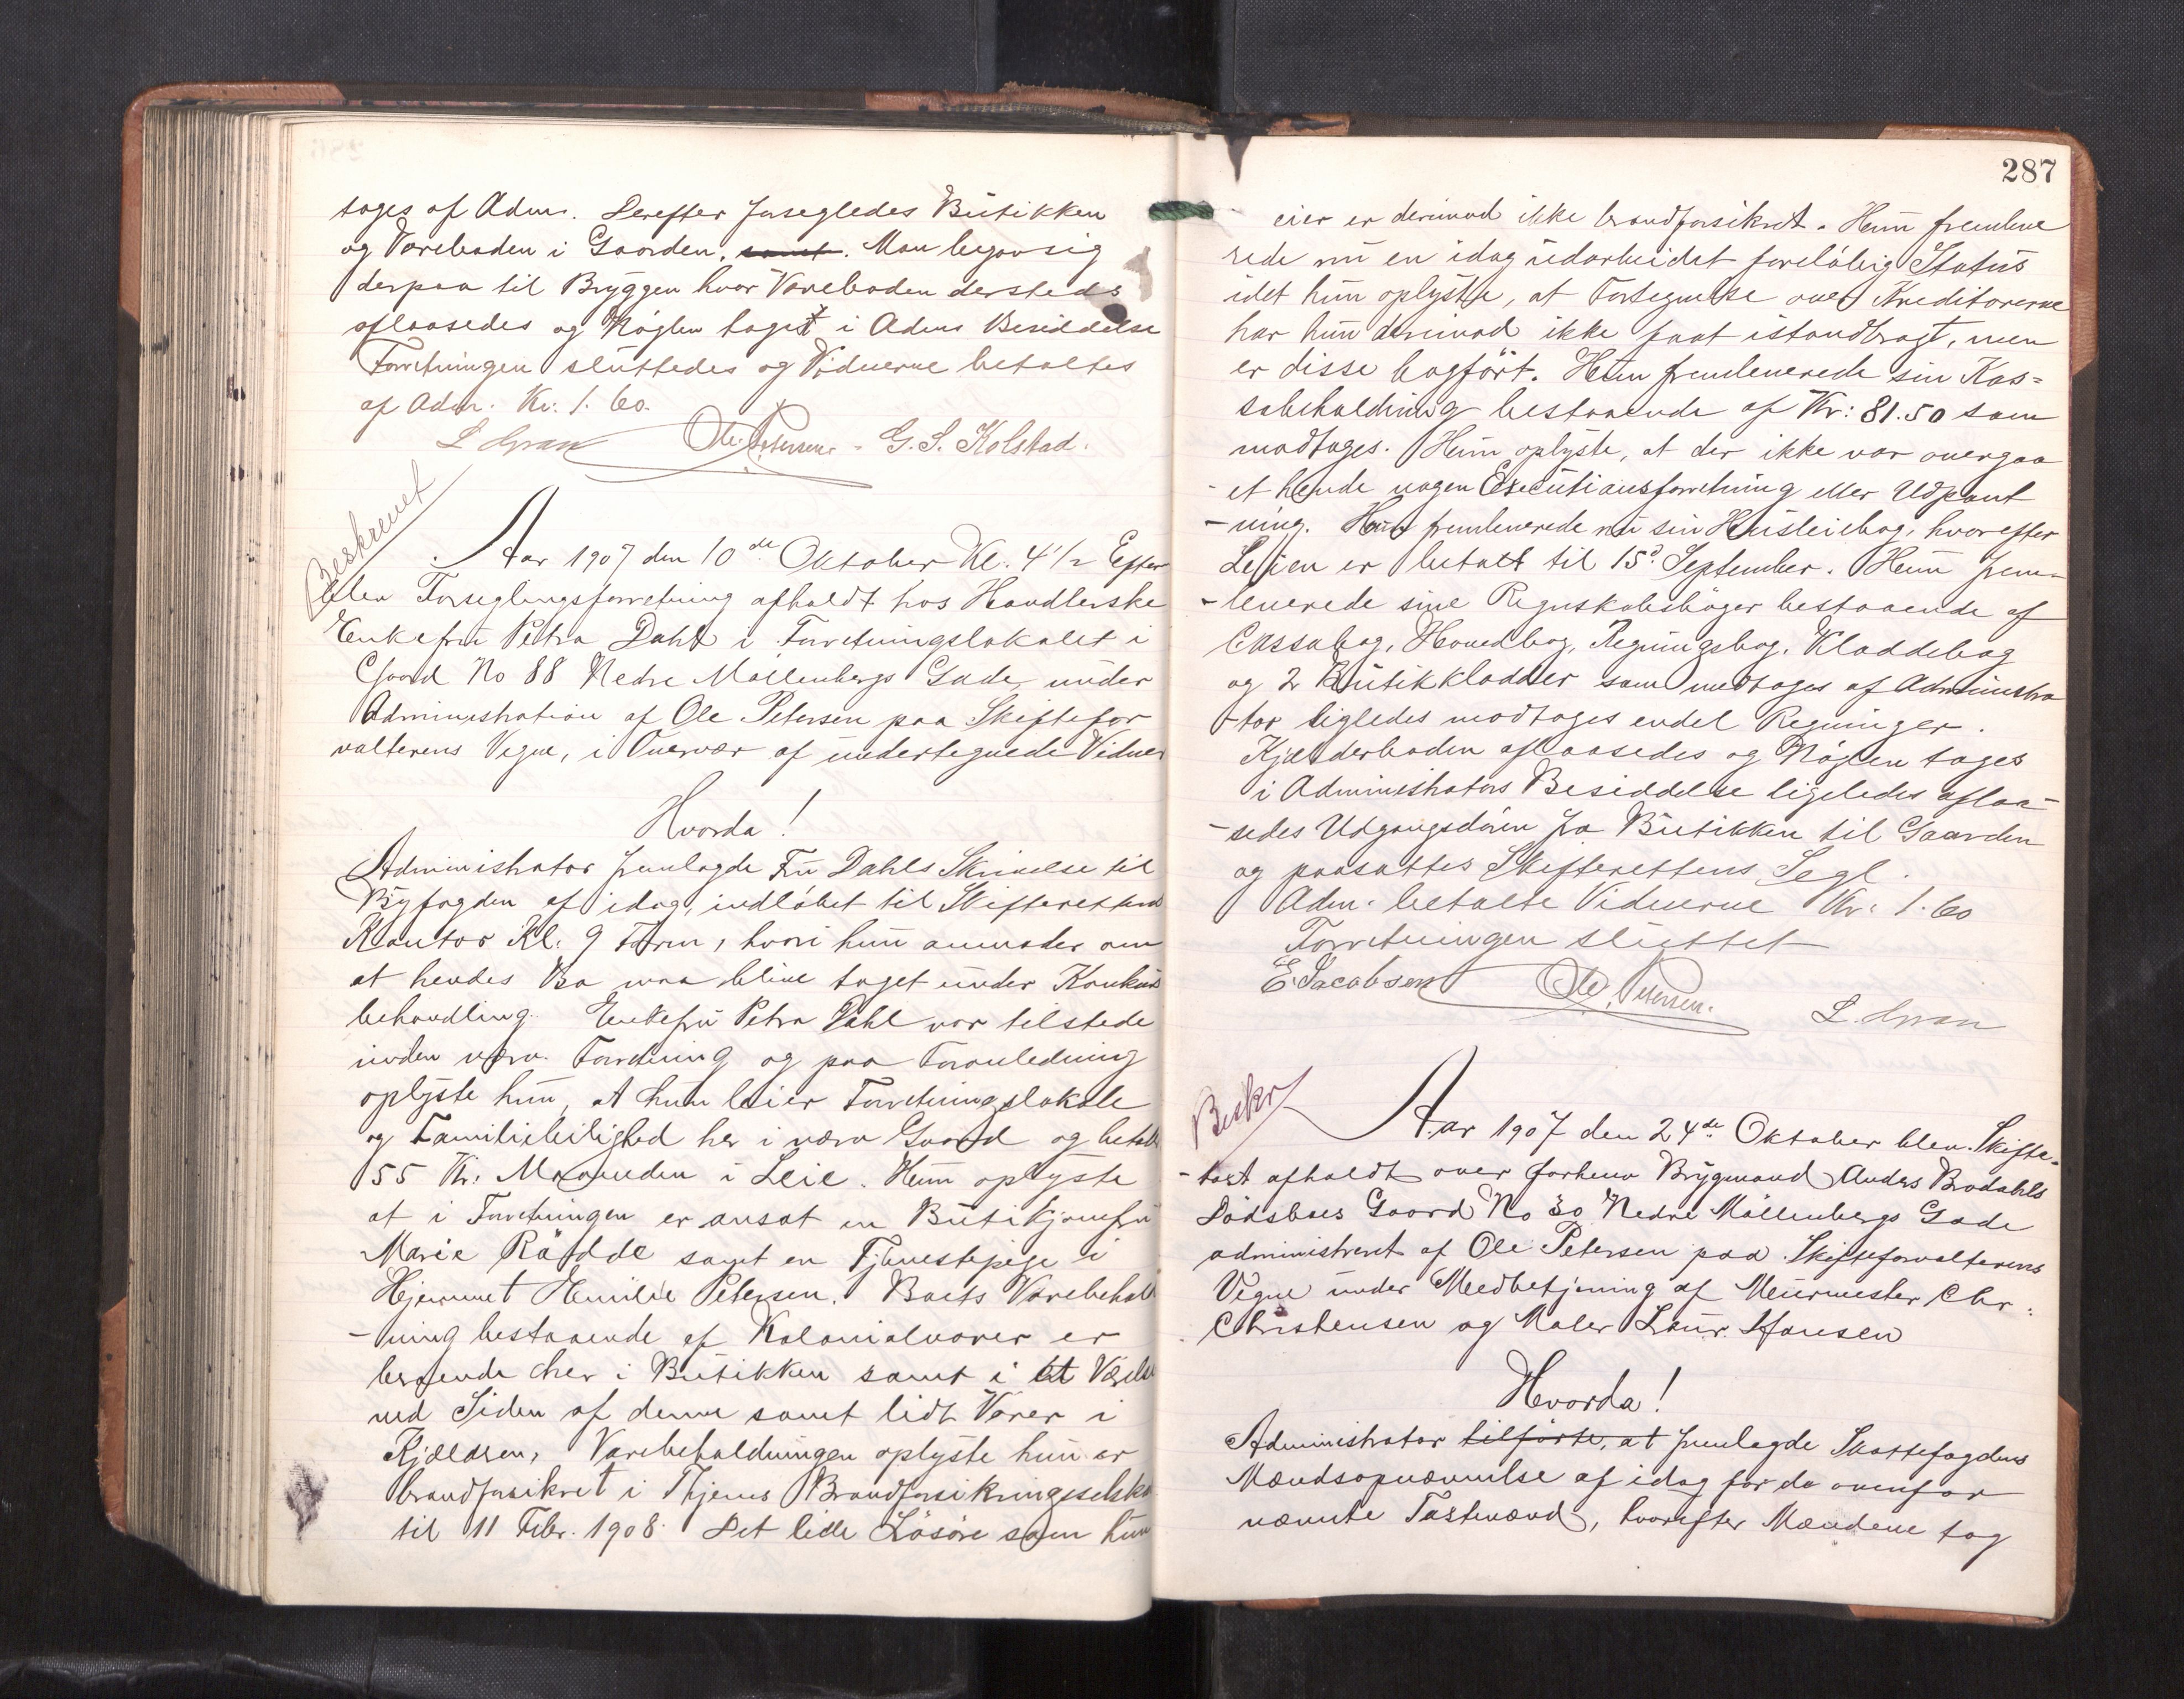 tages af Adm. Derefter forsegledes Butikken
og Vareboden i Gaarden, samt. Man begav sig
derpaa til Bryggen hvor Vareboden dersteds
aflaasedes og Nøglen taget i Adms Besiddelse
Forretningen sluttedes og Vidnerne betaltes
af Adm. Kr. 1.60.
Ole Petersen. G. S. Kolstad.
Beskrevet
Aar 1907 den 10de Oktober Kl. 4 1/2 Efter
blev Forseglingsforretning afholdt hos Handlerske
Enkefru Petra Dahl i Forretningslokalet i
Gaard No 88 Nedre Møllenbergs Gade under
Administration af Ole Petersen paa Skiftefor
valterens Vegne, i Overvær af undertegnede Vidner
Hvorda!
Administrator fremlagde Fru Dahls Skrivelse til
Byfogden af idag, indløbet til Skifterettens
Kontor Kl. 9 Form, hvori hun anmoder om
at hendes Bo maa blive taget under Konkurs
behandling. Enkefru Petra Dahl var tilstede
under nærv. Forretning og paa Foranledning
oplyste hun, at hun leier Forretningslokale
og Familieleilighed her i nærv Gaard og betaler
55 Kr. Maaneden i Leie. Hun oplyste
at i Forretningen er ansat en Butikjomfru
Marie Rødde samt en Tjenestepige i
Hjemmet Emilie Petersen. Boets Varebehold
-ning bestaaende af Kolonialvarer er
beroende her i Butikken samt i et Værelse
ved Siden af denne samt lidt Varer i
Kjælderen, Varebeholdningen oplyste hun er
brandforsikret i Thjems Brandforsikringsselskab
til 11 Febr. 1908. Det lille Løsøre som hun
287
eier er derimod ikke brandforsikret. Hun fremleve
rede nu en idag udarbeidet foreløbig Status
idet hun oplyste, at Fortegnelse over Kreditorerne
har hun derimod ikke faat istandbragt, men
er disse bogført. Hun fremleverede sin Kas=
sabeholdning bestaaende af Kr: 81.50 som
modtoges. Hun oplyste, at der ikke var overgaa
-et hende nogen Executionsforretning eller Udpant
-ning. Hun fremleverede nu sin Husleiebog, hvorefter
Leien er betalt til 15d September. Hun frem-
-leverede sine Regnskabsbøger bestaaende af
Cassabog, Hovedbog, Regningsbog, Kladdebog
og 2 Butikkladder som modtoges af Administra
-tor ligledes modtoges endel Regninger.
Kjælderboden aflaasedes og Nøglen tages
i Administrators Besiddelse ligeledes aflaa-
-sedes Udgangsdøren fra Butikken til Gaarden
og paasattes Skifterettens Segl.
Adm. betalte Vidnerne Kr. 1.60
Forretningen sluttet
E. Jacobsen Ole Petersen.
Beskr
Aar 1907 den 24de Oktober blev Skifte-
-taxt afholdt over forhenv Brygmand Anders Brodahls
Dødsboes Gaard No 30 Nedre Møllenbergs Gade
administreret af Ole Petersen paa Skifteforvalterens
Vegne under Medbetjening af Murmester Chr.
Christensen og Maler Laur. Hansen
Hvorda!
Administrator tilførte, at fremlagde Skattefogdens
Mændsopnævnelse af idag for de ovenfor
nævnte Taxtmænd, hvorefter Mændene tog